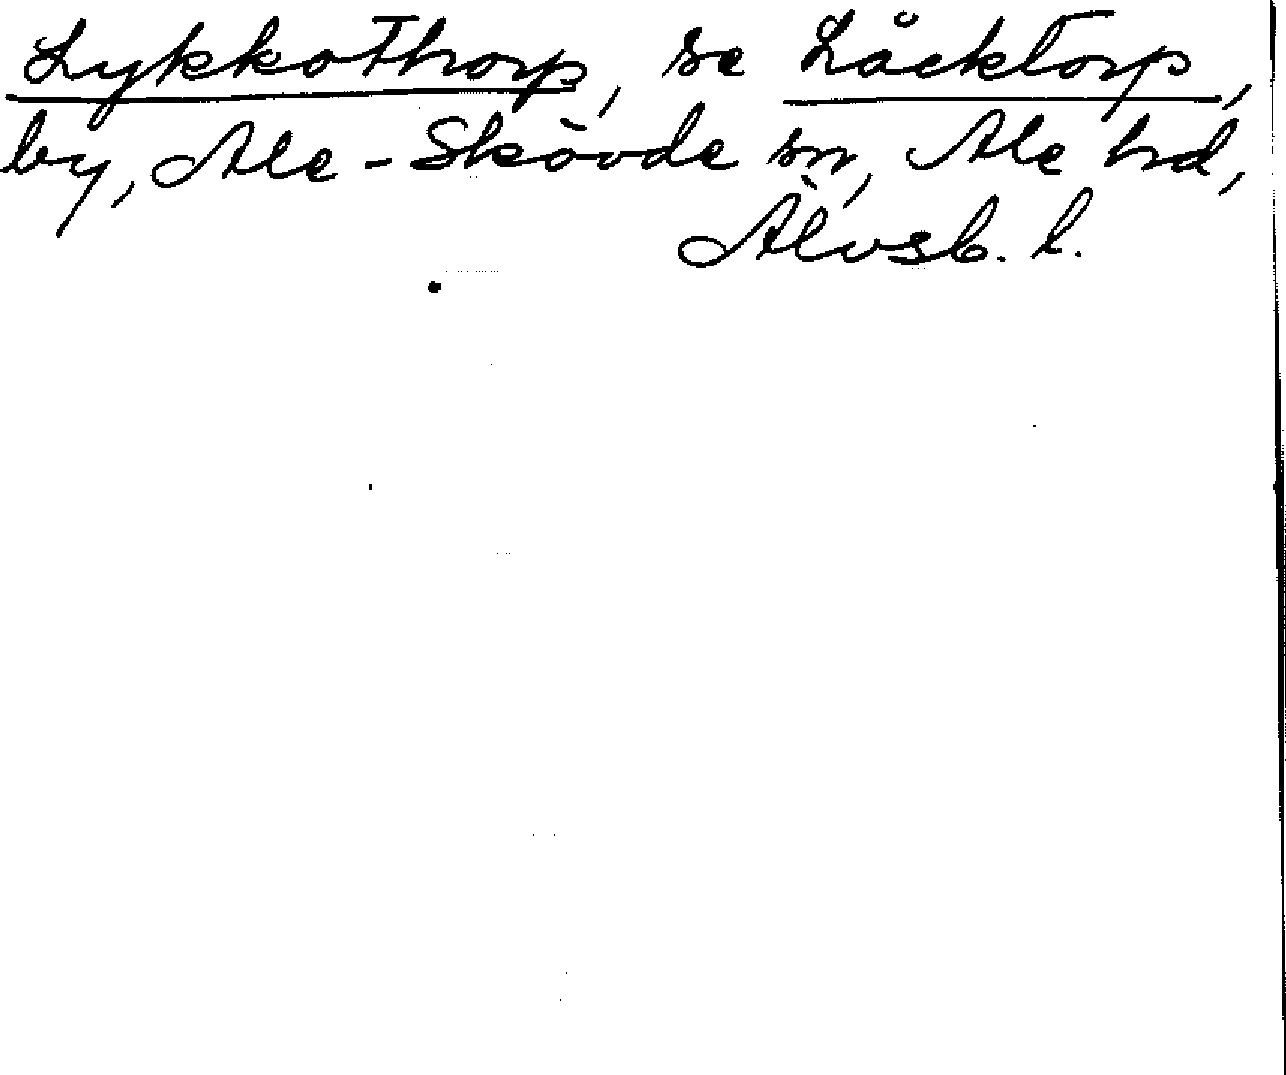 Lykkothorp, se Låcktorp,
by, Ale-Skövde sn, Ale hd,
Älvsb. l.